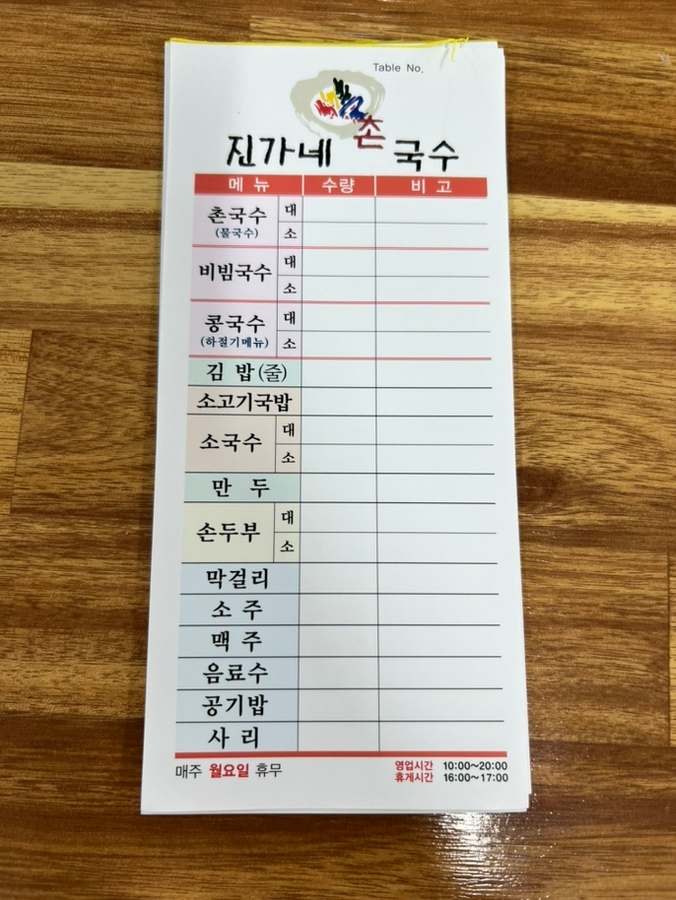 Table No.
진가네 촌 국수
메 뉴 수량 비 고
촌국수 대
(물국수) 소
비빔국수 대
소
콩국수 대
(하절기메뉴) 소
김 밥(줄)
소고기국밥
소국수 대
소
만 두
손두부 대
소
막걸리
소 주
맥 주
음료수
공기밥
사 리
매주 월요일 휴무
영업시간 10:00~20:00
휴게시간 16:00~17:00